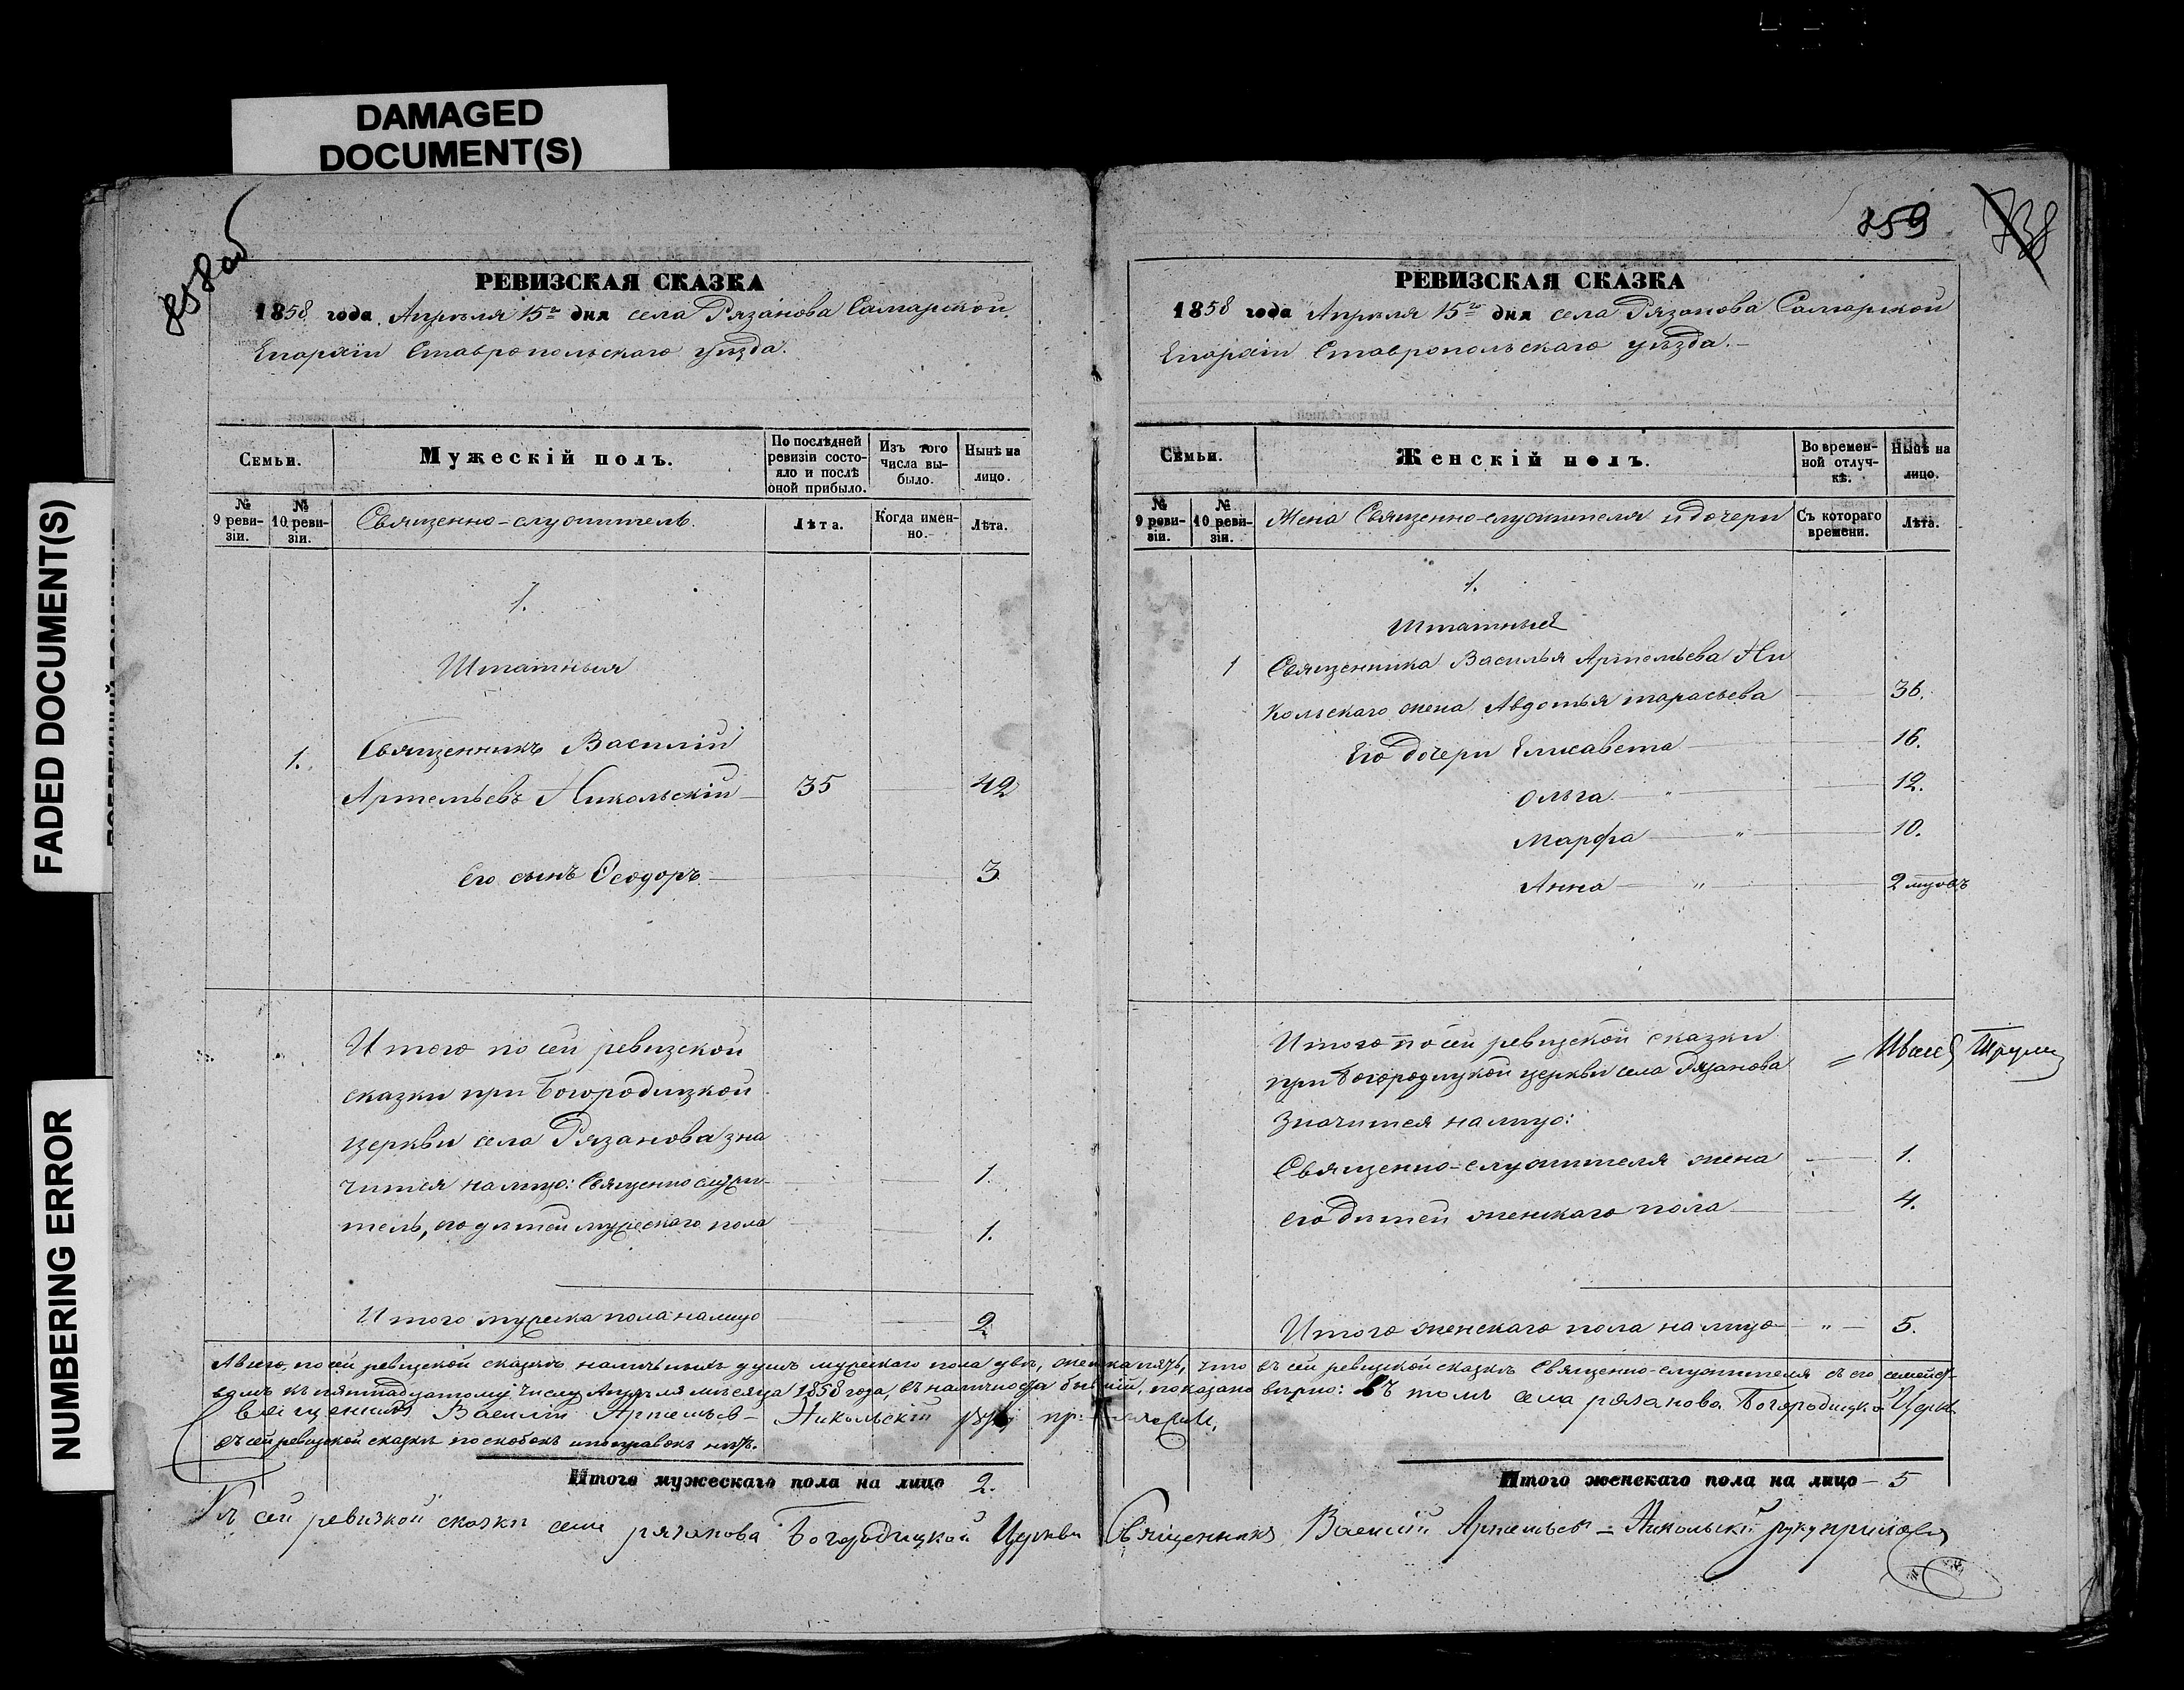 DAMAGED
DOCUMENT(S)
FADED DOCUMENT(S)
NUMBERING ERROR
858 об
РЕВИЗСКАЯ СКАЗКА
1858 года Апрѣля 15го дня села Рязанова Самарской
Епархіи Ставропольскаго уѣзда.
Семьи.
Мужескій полъ.
По послѣдней ревизіи состояло и послѣ оной прибыло.
Изъ того числа выбыло.
Нынѣ на лицо.
№ 9 ревизіи.
№ 10 ревизіи.
Священно-служитель.
Лѣта.
Когда именно.
Лѣта.
1.
Штатныя
1. Священникъ Василій
Артемьевъ Никольскій 35 42
Его сынъ Ѳеодоръ 3
Итого по сей ревизской
сказки при Богородицкой
церкви села Рязанова зна
чится на лицо: Священно служи- 1.
тель, его дѣтей мужескаго пола 1.
Итого мужеска пола на лицо 2.
859
738
РЕВИЗСКАЯ СКАЗКА
1858 года Апрѣля 15го дня села Рязанова Самарской
Епархіи Ставропольскаго уѣзда.
Семьи.
Женскій полъ.
Во временной отлучкѣ.
Нынѣ на лицо.
№ 9 ревизіи.
№ 10 ревизіи.
Жена Священно-служителя и дочери
Съ котораго времени.
Лѣта.
1.
Штатные
1 Священника Василья Артемьева Ни
кольскаго жена Авдотья тарасьева 36.
Его дочери Елисавета 16.
Ольга " 12.
Марфа " 10.
Анна " 2
Итого по сей ревизской сказки
при Богородицкой церкви села Рязанова
Значится на лицо:
Священно-служителя жена 1.
его дѣтей женскаго пола 4.
Итого женскаго пола на лицо " 5.
А всего по сей ревизской сказкѣ наличныхъ душъ мужескаго пола двѣ, женска пять, что въ сей ревизской сказкѣ Священно-служителя съ его семейст-
вомъ къ пятнадцатому числу Апрѣля мѣсяца 1858 года, въ наличности бывшій, показано вѣрно: въ томъ села рязанова Богородицкой Церкв.
Священникъ Василій Артемьевъ Никольскій руку
въ сей ревизской сказкѣ поскобокъ и поправокъ нѣтъ.
Итого мужескаго пола на лицо 2.
Итого женскаго пола на лицо 5
Къ сей ревизкой сказки села рязанова Богородицкой Церкви Священникъ Василій Артемьевъ = Никольскій руку приложилъ